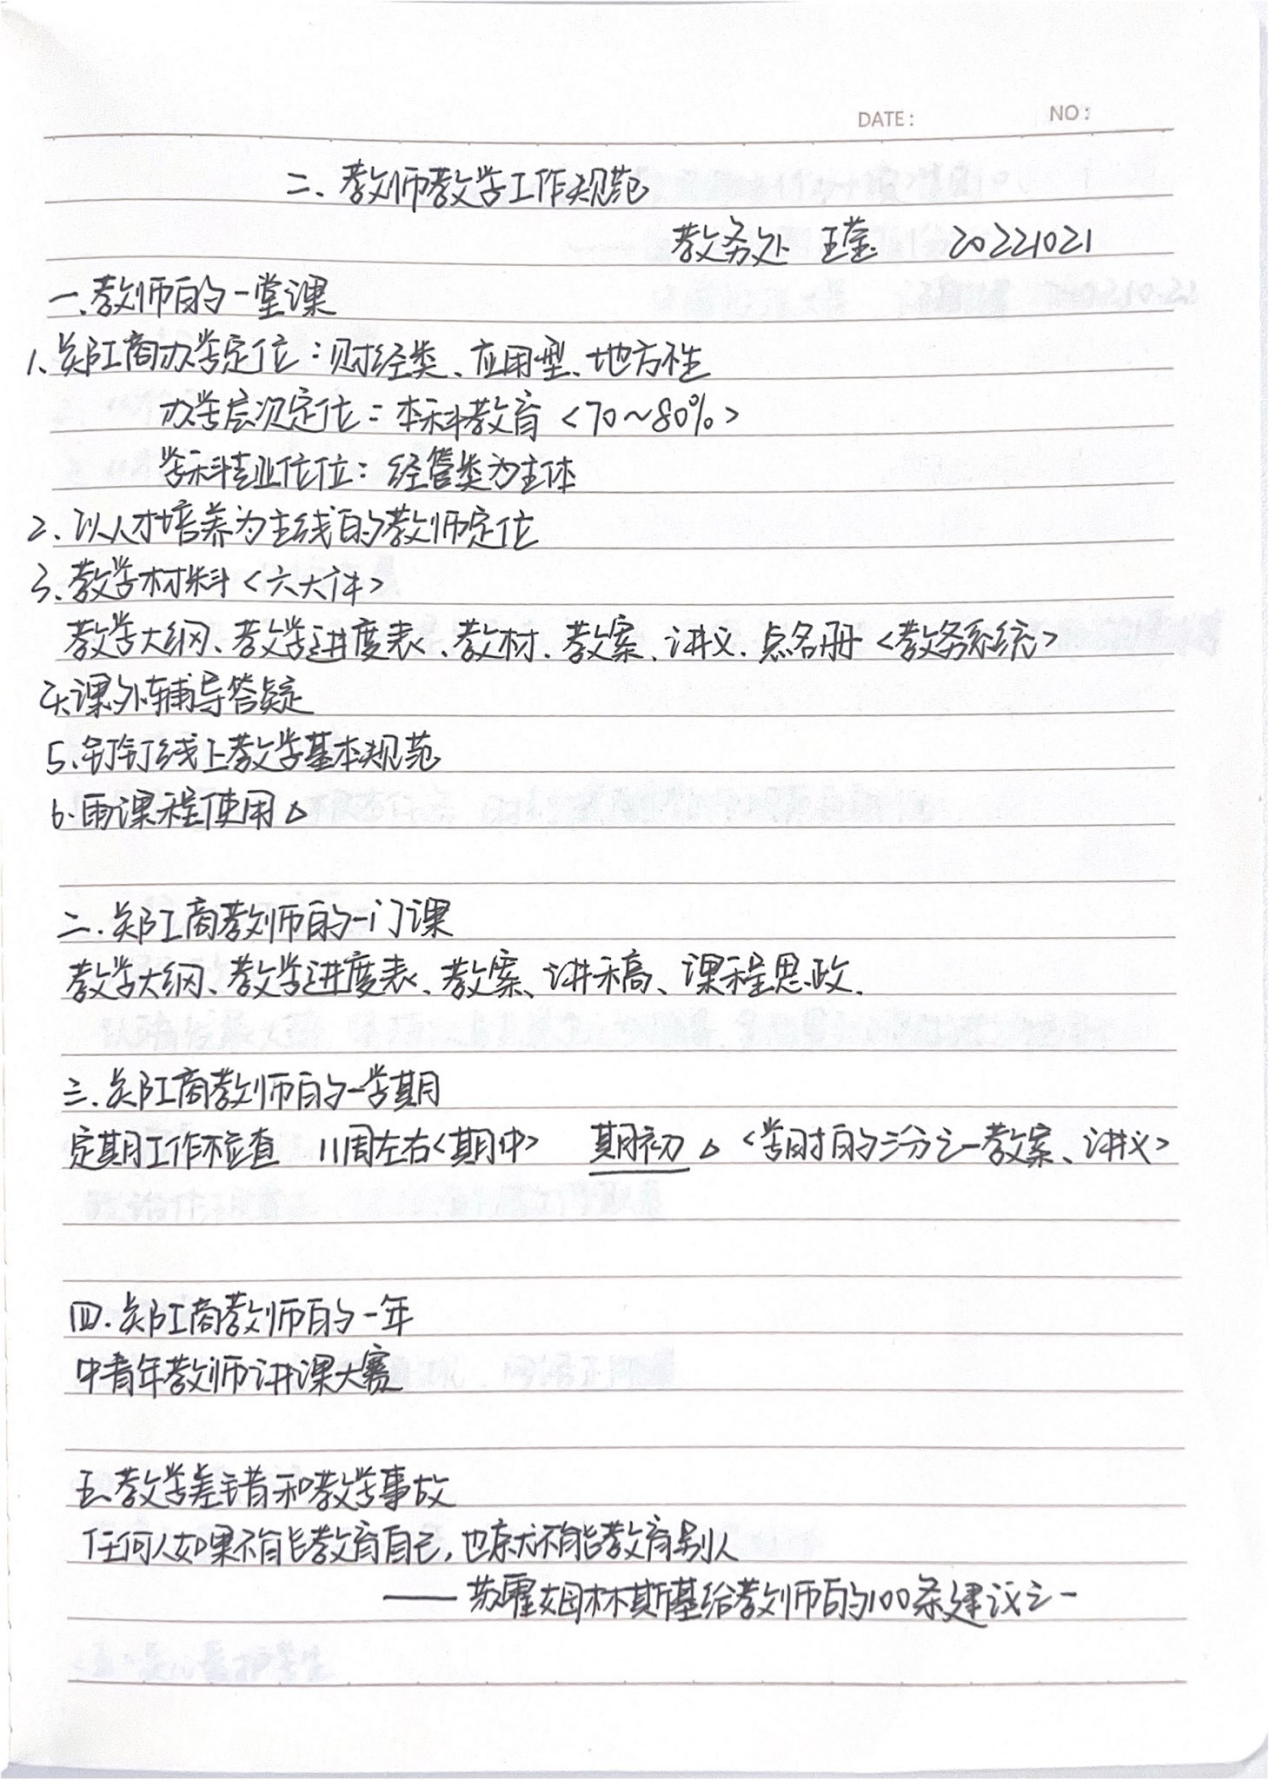 DATE:
NO:
二、教师教学工作规范
教务处 王莹 20221021
一、教师的一堂课
1、郑工商办学定位:财经类、应用型、地方性
办学层次定位:本科教育<70~80%>
学科专业定位:经管类为主体
2、以人才培养为主线的教师定位
3、教学材料<六大件>
教学大纲、教学进度表、教材、教案、讲义、点名册<教务系统>
4、课外辅导答疑
5、钉钉线上教学基本规范
6.雨课程使用△
二、郑工商教师的一门课
教学大纲、教学进度表、教案、讲稿、课程思政.
三、郑工商教师的一学期
定期工作检查 11周左右<期中> 期初△<学时的三分之一教案、讲义>
四.郑工商教师的一年
中青年教师讲课大赛
五、教学差错和教学事故
任何人如果不能教育自己,也就不能教育别人
——苏霍姆林斯基给教师的100条建议之一